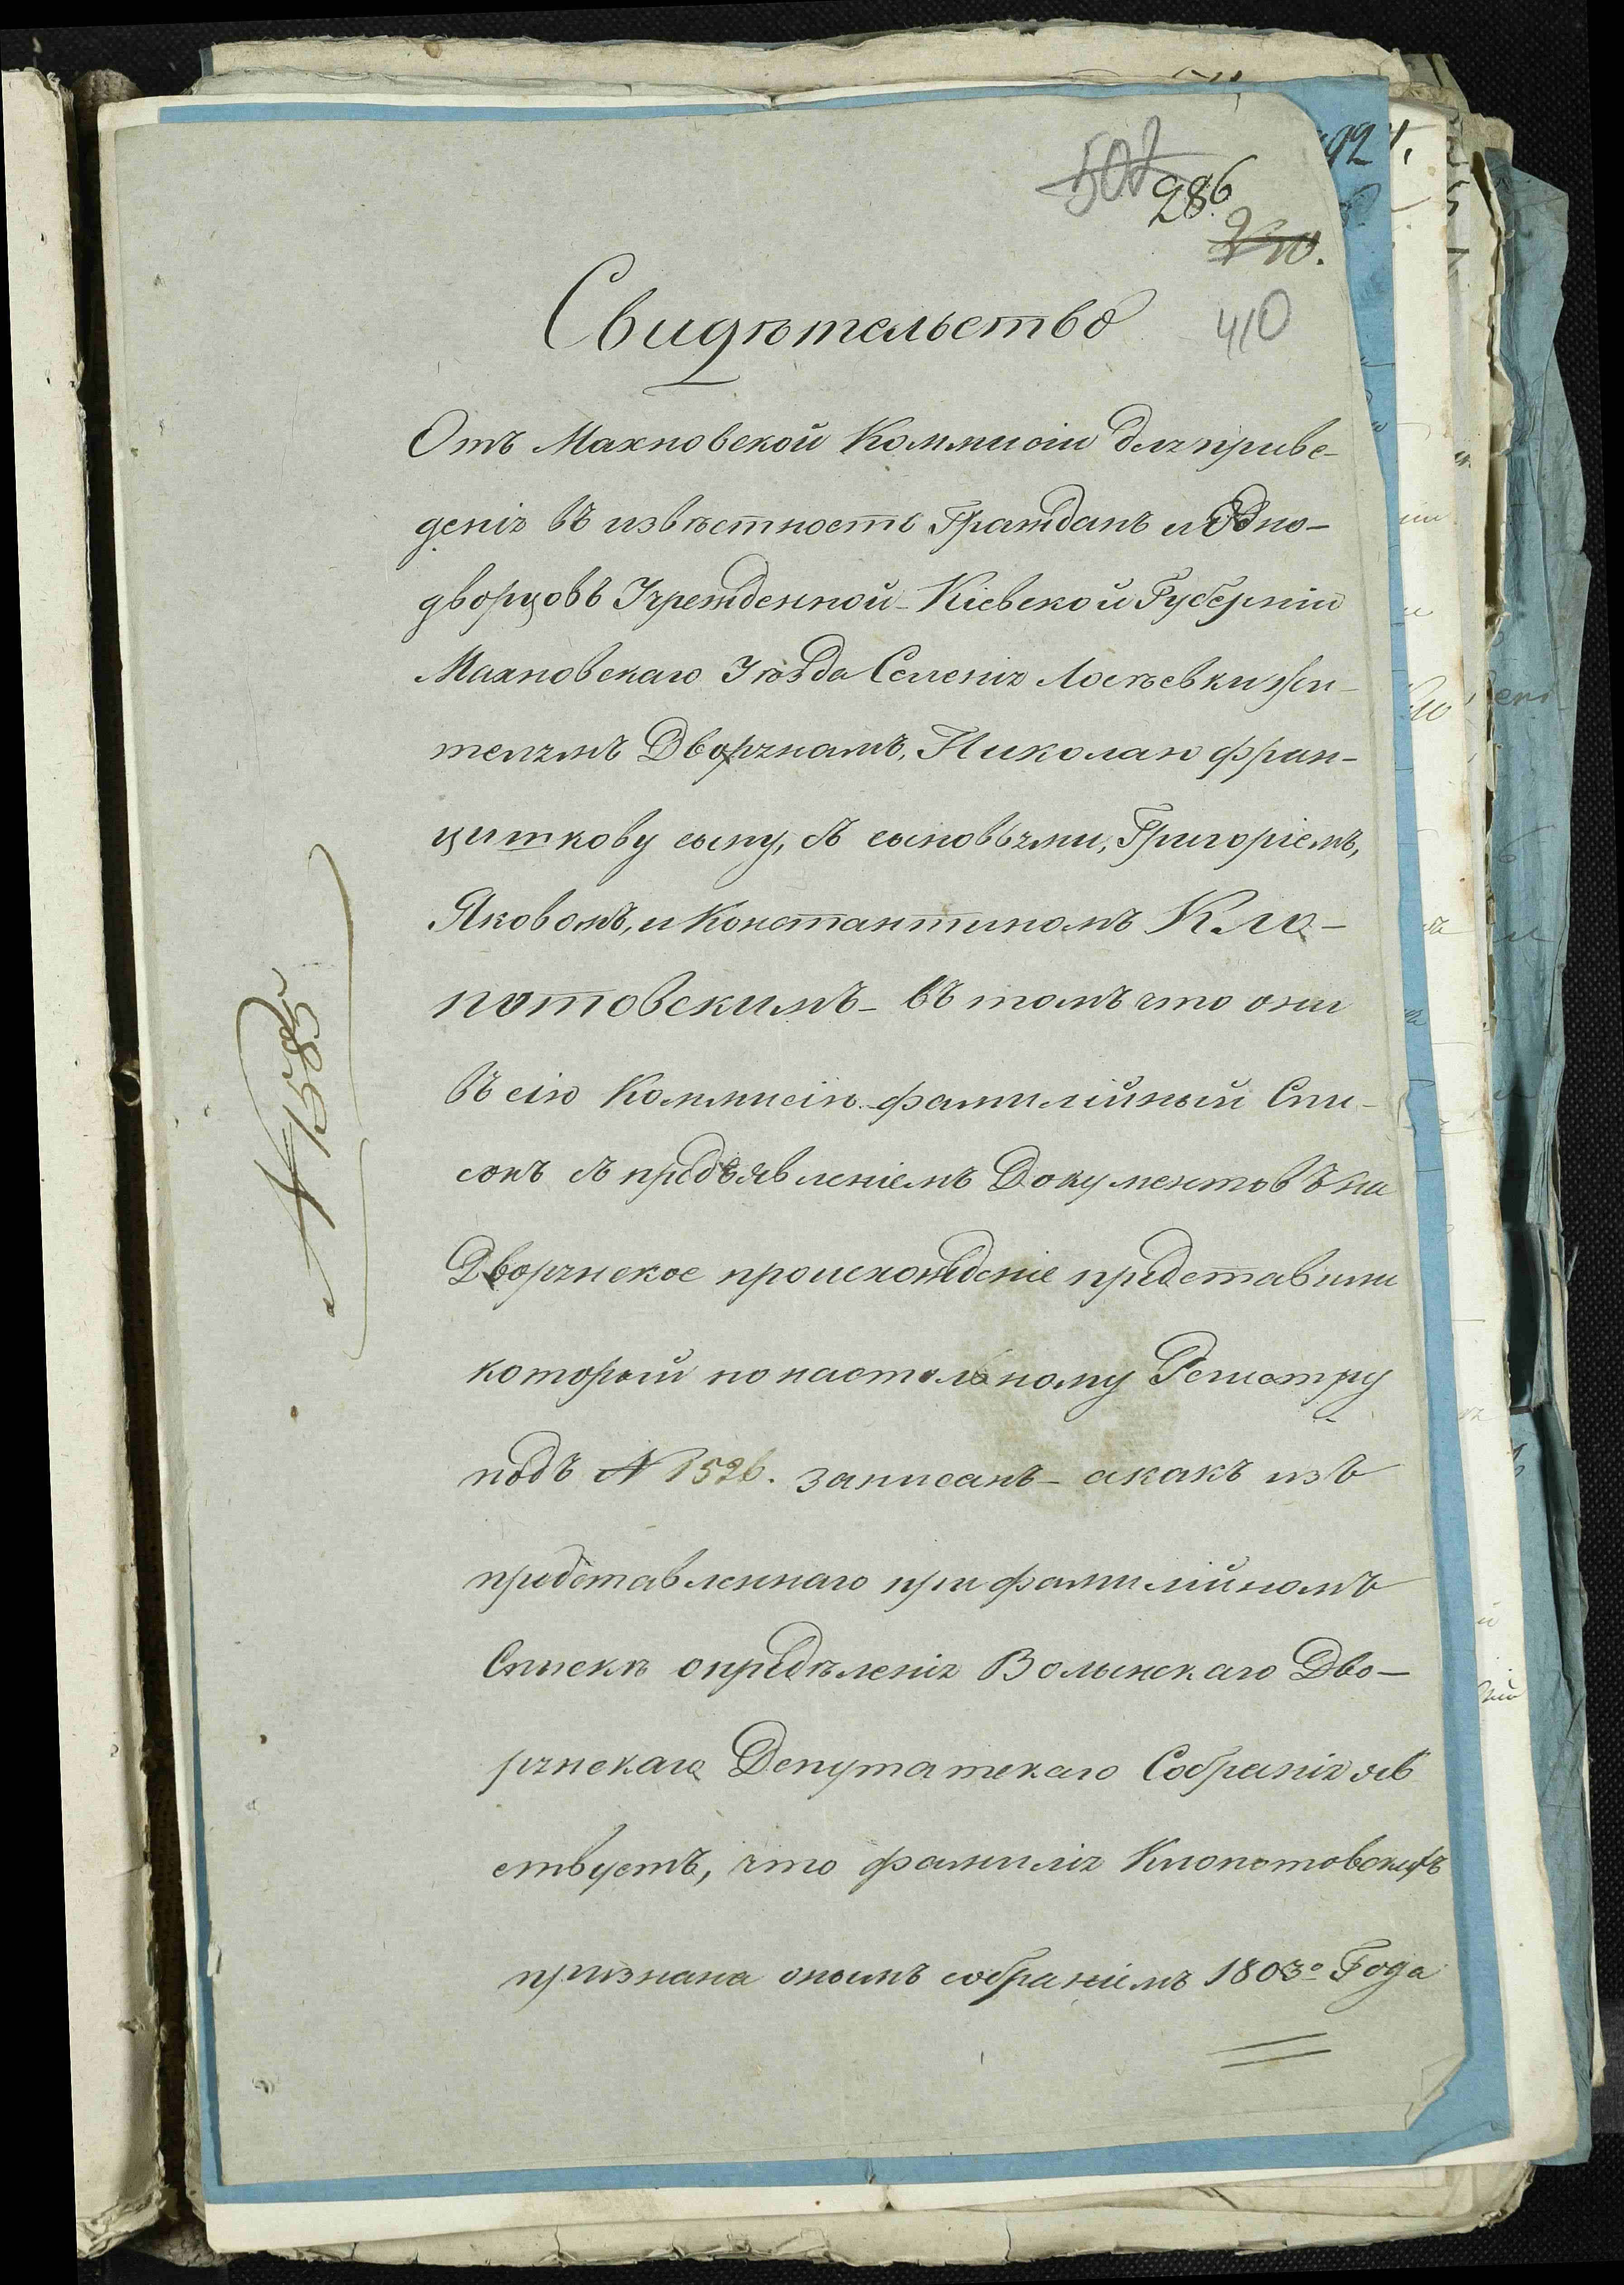 502
286
410
Свидѣтельство
Отъ Махновской Коммисіи для приве-
денія въ извѣстность Гражданъ и Одно-
дворцовъ Учрежденной Кіевской Губерніи
Махновскаго Уѣзда Селенія Лосѣевки жи-
телямъ Дворянамъ, Николаю Фран-
цишкову сыну, съ сыновьями, Григоріемъ,
Яковомъ, и Константиномъ Кло-
потовскимъ въ томъ что они
въ сію Коммисію фамилійный Спи-
сокъ съ предъявленіемъ Документовъ на
Дворянское происхожденіе представили
который по настольному Регистру
подъ № 1526. записанъ - а какъ изъ
представленнаго при фамилійномъ
Спискѣ опредѣленія Волынскаго Дво-
рянскаго Депутатскаго Собранія яв
ствуетъ, что фамилія Клопотовскихъ
признана онымъ собраніемъ 1803º Года
№ 1583